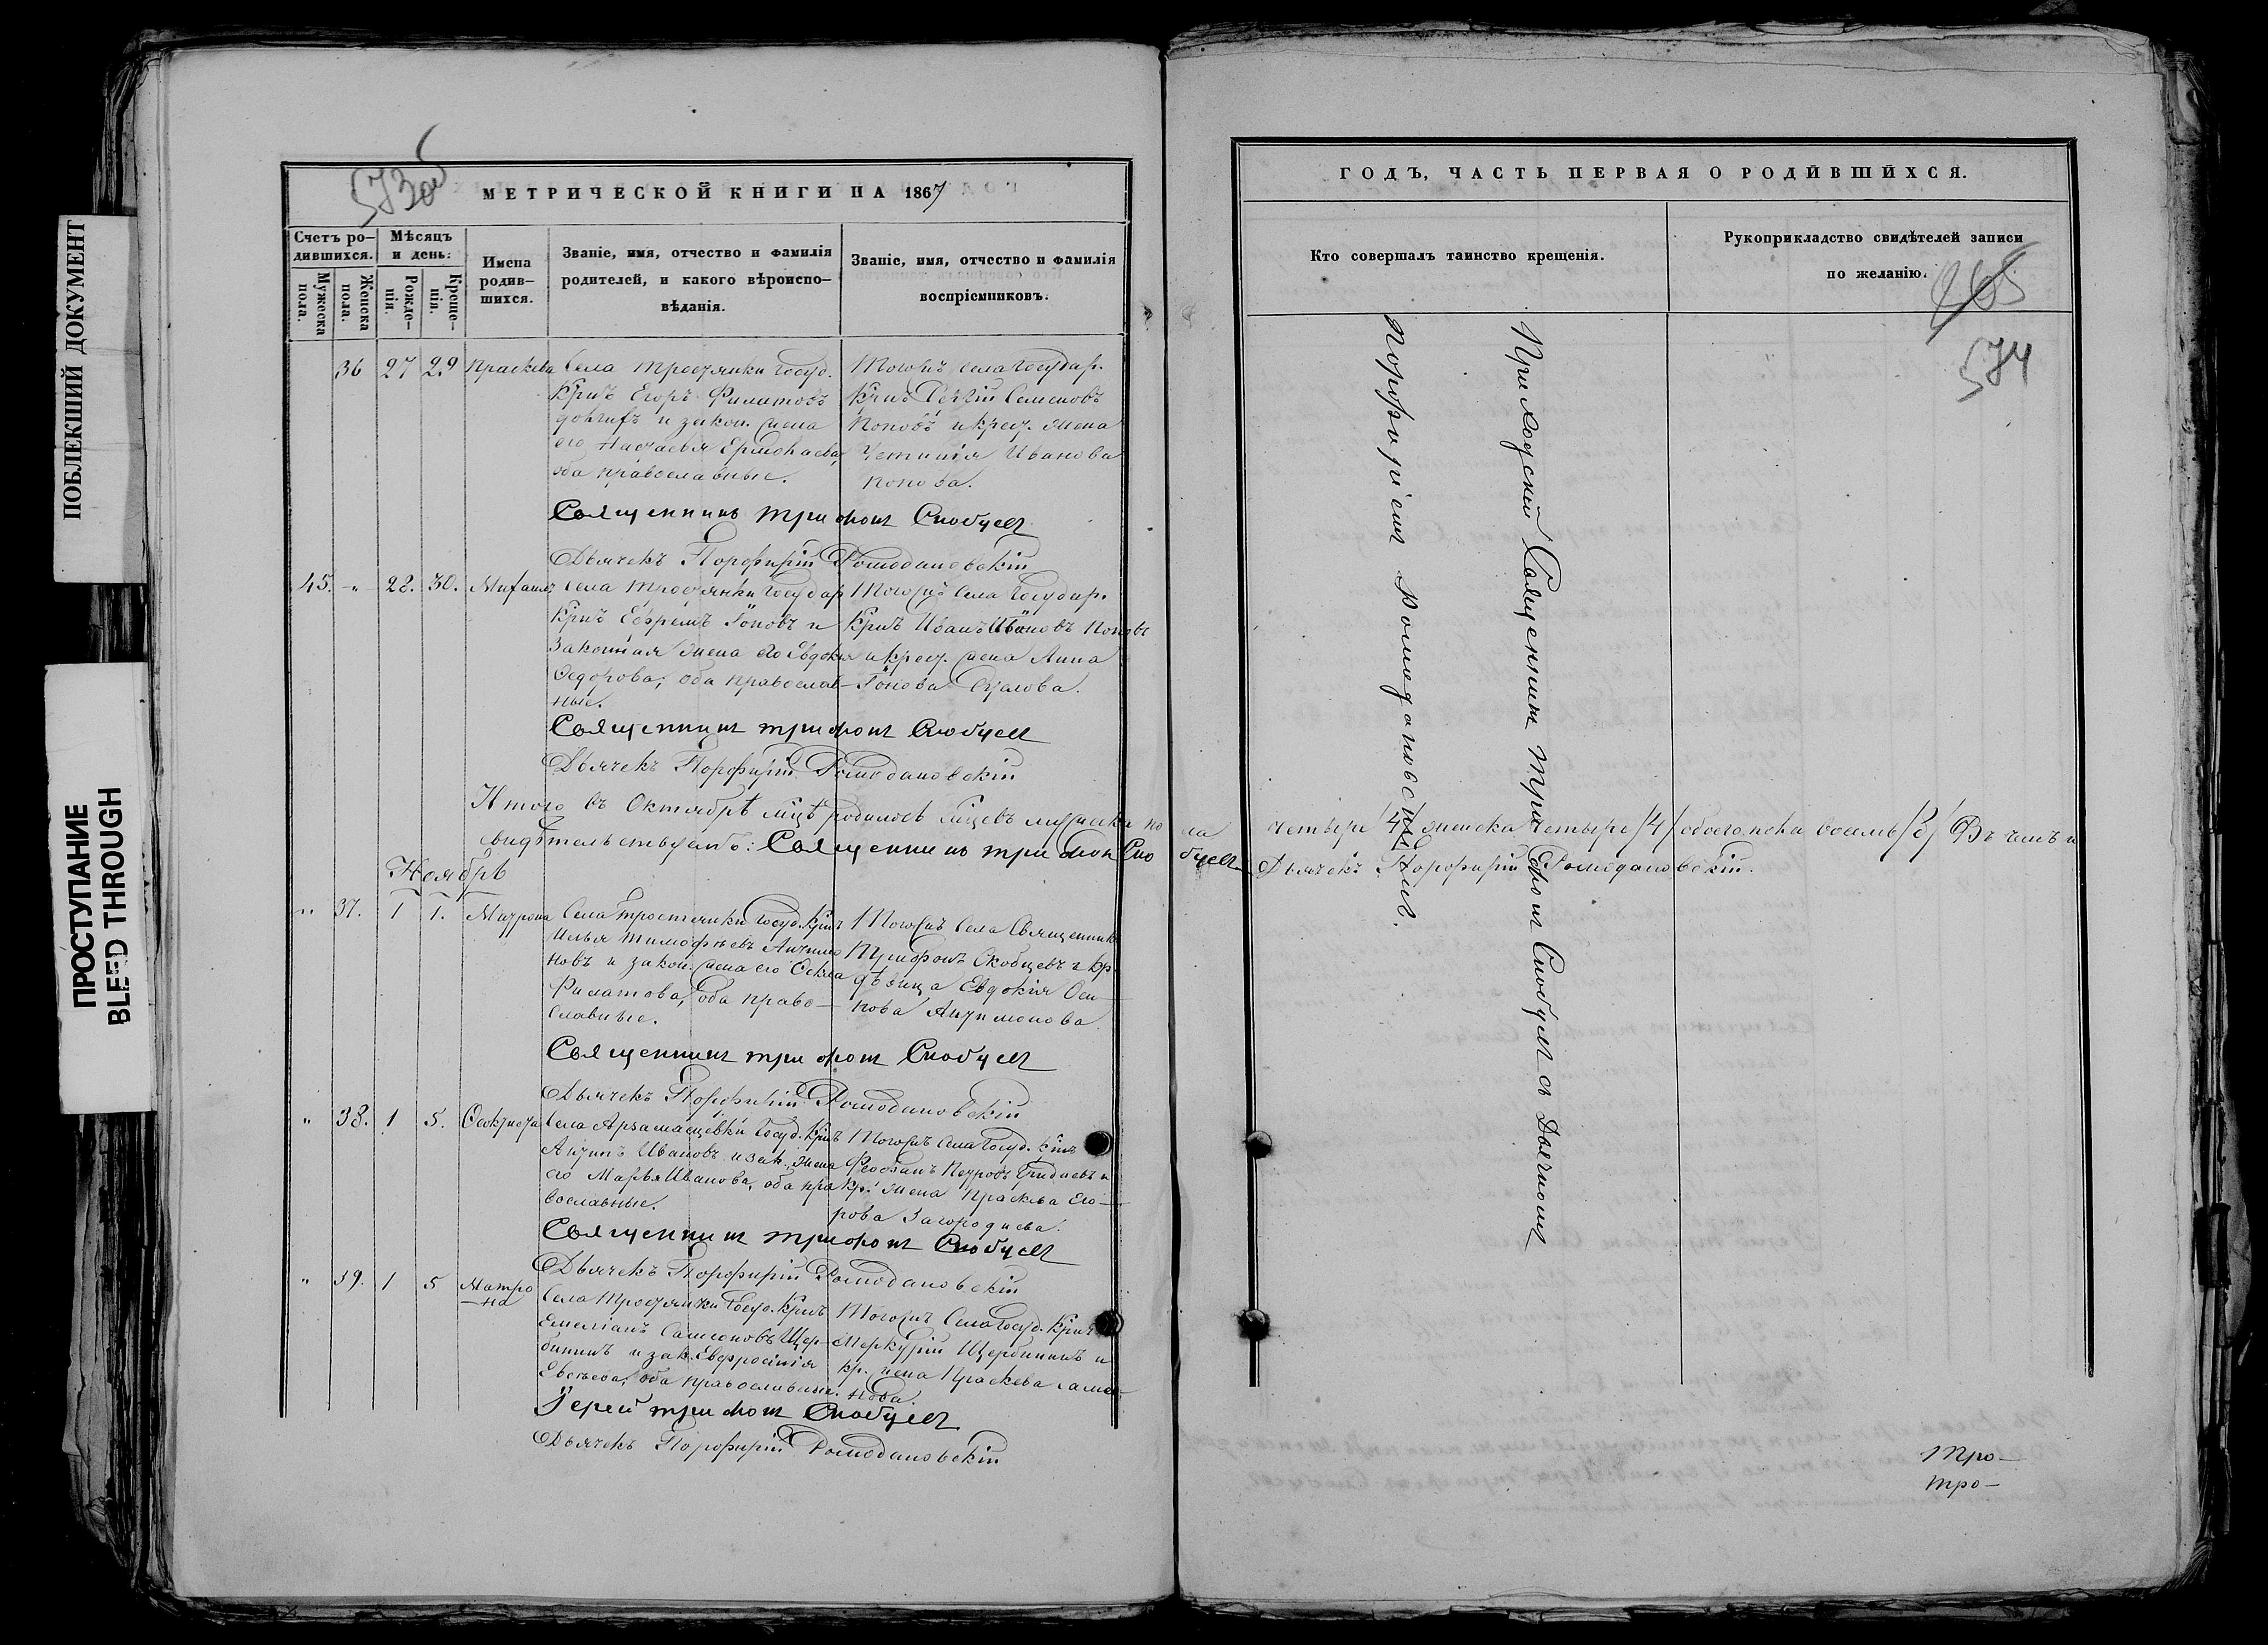 ПОБЛЕКШИЙ ДОКУМЕНТ
ПРОСТУПАНИЕ
BLEED THROUGH
573об
МЕТРИЧЕСКОЙ КНИГИ НА 1867
Счетъ ро-
дившихся.
Мужеска пола.
Женска пола.
Мѣсяцъ
и день.
Рожде-
нія.
Креще-
нія.
Имена
родив-
шихся.
Званіе, имя, отчество и фамилія
родителей, и какого вѣроиспо-
вѣданія.
Званіе, имя, отчество и фамилія
воспріемниковъ.
36 27 29 Праскева
Села Тростянки Госуд.
Кр͠нъ Егоръ Филатовъ
и закон. жена
его Настасья Ермолаева,
оба православные.
Тогожъ села Государ.
Кр͠нъ Семеновъ
Поповъ и крест. жена
Иванова
Попова.
Священникъ Трифонъ Скобцев
Дьячекъ Порфирій Ромодановскій
45. -"- 22. 30. Михаилъ
Села Тростянки Государ
Кр͠нъ Ефремъ Іоновъ и
Законная жена его Евдокия
Федорова, оба православ-
ные.
Тогожъ Села Государ.
Кр͠нъ Иванъ Ивановъ Поповъ
и крест. жена Анна
Іонова
Священникъ Трифонъ Скобцев
Дьячекъ Порфирій Ромодановскій
Итого въ Октябрѣ м͠цѣ родилось мужеска по
свидѣтельствуемъ: Священникъ Трифон Ско
Ноябрь
" 37. 1 1. Матрона
Села Тростянки Госуд. Кр͠нъ
Илья Тимофѣевъ Антимо
новъ и закон. жена его Фекла
Филатова, оба право-
славные.
Тогожъ Села Священникъ
Трифонъ Скобцевъ и кр.
дѣвица Евдокія Оси-
пова Антимонова
Священникъ Трифонъ Скобцев
Дьячекъ Порфирій Ромодановскій
" 38. 1 5. Феоктиста
Села Арзамасцевки Госуд. Кр͠нъ
Ивановъ и зак. жена
его Марья Иванова, оба пра
вославные.
Тогожъ Села Госуд. Кр͠нъ
Феофанъ Петровъ и
кр. жена Праскева Его-
рова Загороднева.
Священникъ Трифонъ Скобцев
Дьячекъ Порфирій Ромодановскій
" 39. 1 5 Матро
на
Села Тростянки Госуд. Кр͠нъ
Емеліанъ Самсоновъ Щер-
бининъ и зак. Евфросинія
Евсѣева, оба православные.
Тогожъ Села Госуд. Кр͠нъ
Меркурій Щербининъ и
кр. жена Праскева
нова.
Іерей Трифонъ Скобцев
Дьячекъ Порфирій Ромодановскій
ГОДЪ, ЧАСТЬ ПЕРВАЯ О РОДИВШИХСЯ.
Кто совершалъ таинство крещенія.
Рукоприкладство свидѣтелей записи
по желанію.
465
574
Приходскій Священникъ Трифонъ Скобцев съ Дьячкомъ
Порфиріемъ Ромодановскимъ.
ла четыре /4/ женска четыре /4/ обоего пола восемь /8/ Въ чемъ и
бцев Дьячекъ Порфирій Ромодановскій.
Тро-
Тро-